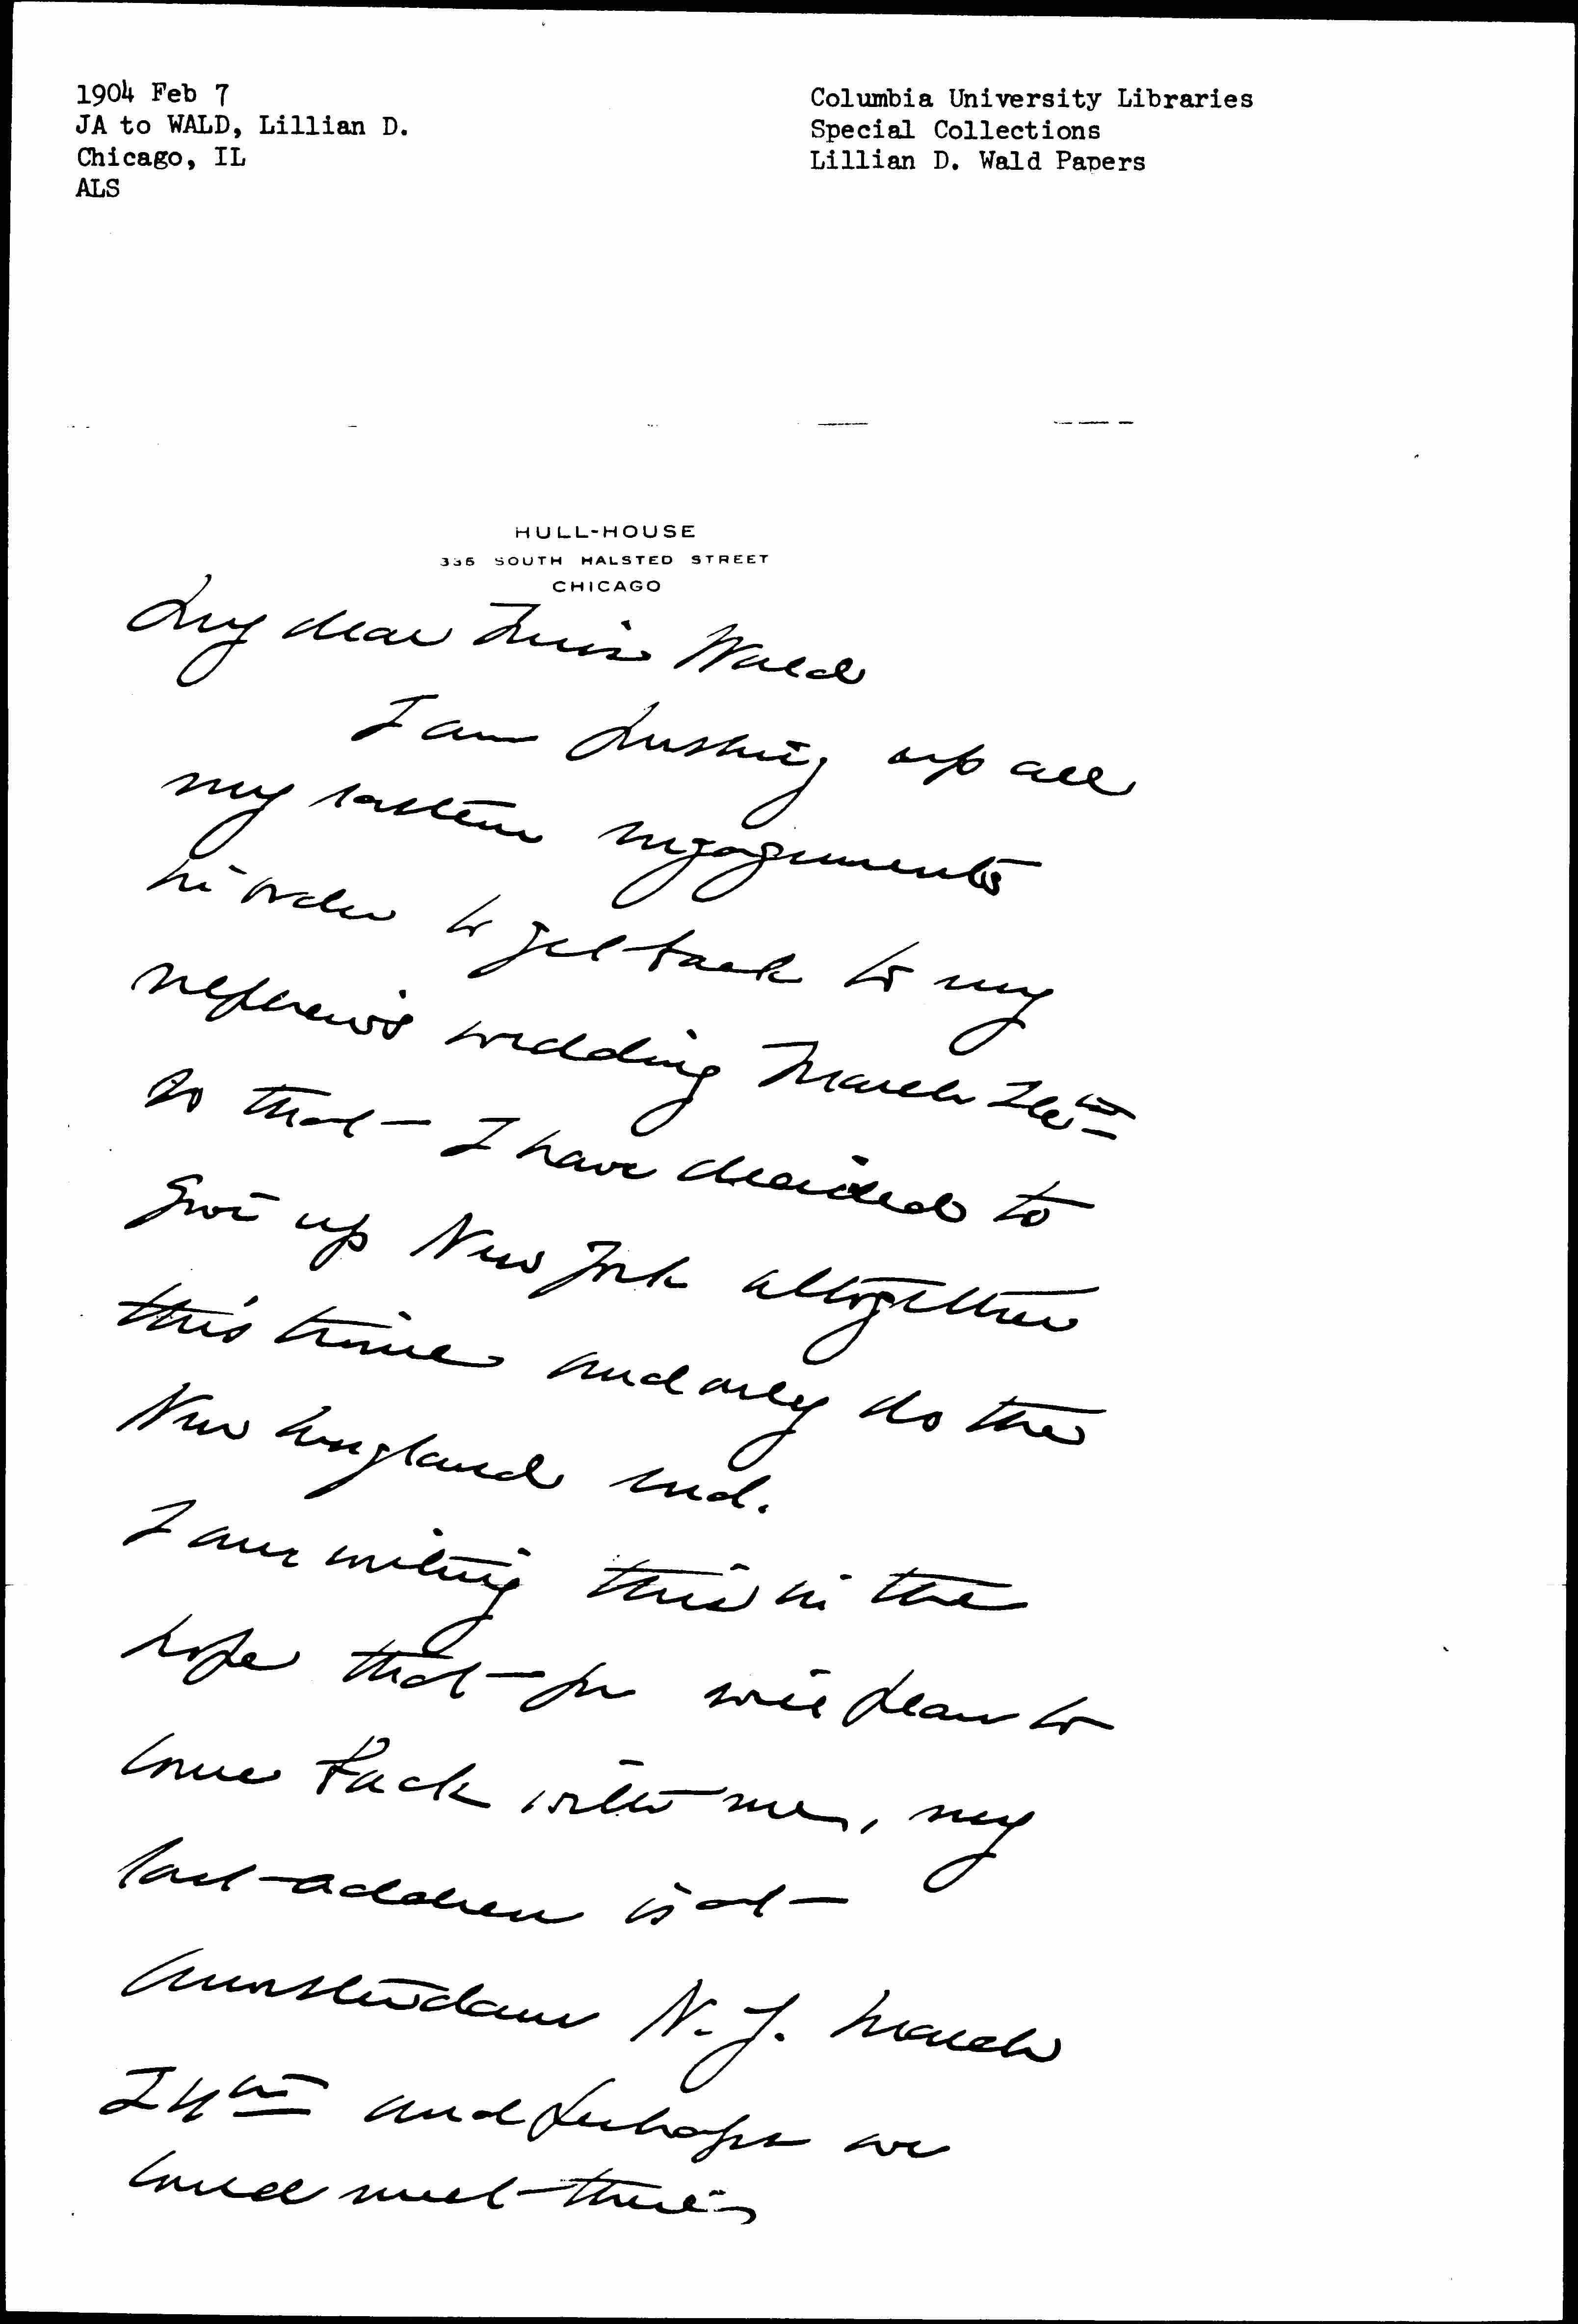 1904 Feb 7
JA to WALD, Lillian D.
Chicago, IL
ALS
Columbia University Libraries
Special Collections
Lillian D. Wald Papers
HULL-HOUSE
335 SOUTH HALSTED STREET
CHICAGO
My dear Miss Wald
I am pushing up all
my eastern engagements
in order to get back to my
nephew's wedding March 26th
so that I have decided to
give up New York altogether
this time and only do the
New England end.
I am writing this in the
hope that you will plan to
come back with me, my
last address is at
Amsterdam N.Y. March
24th and perhaps we
could meet there